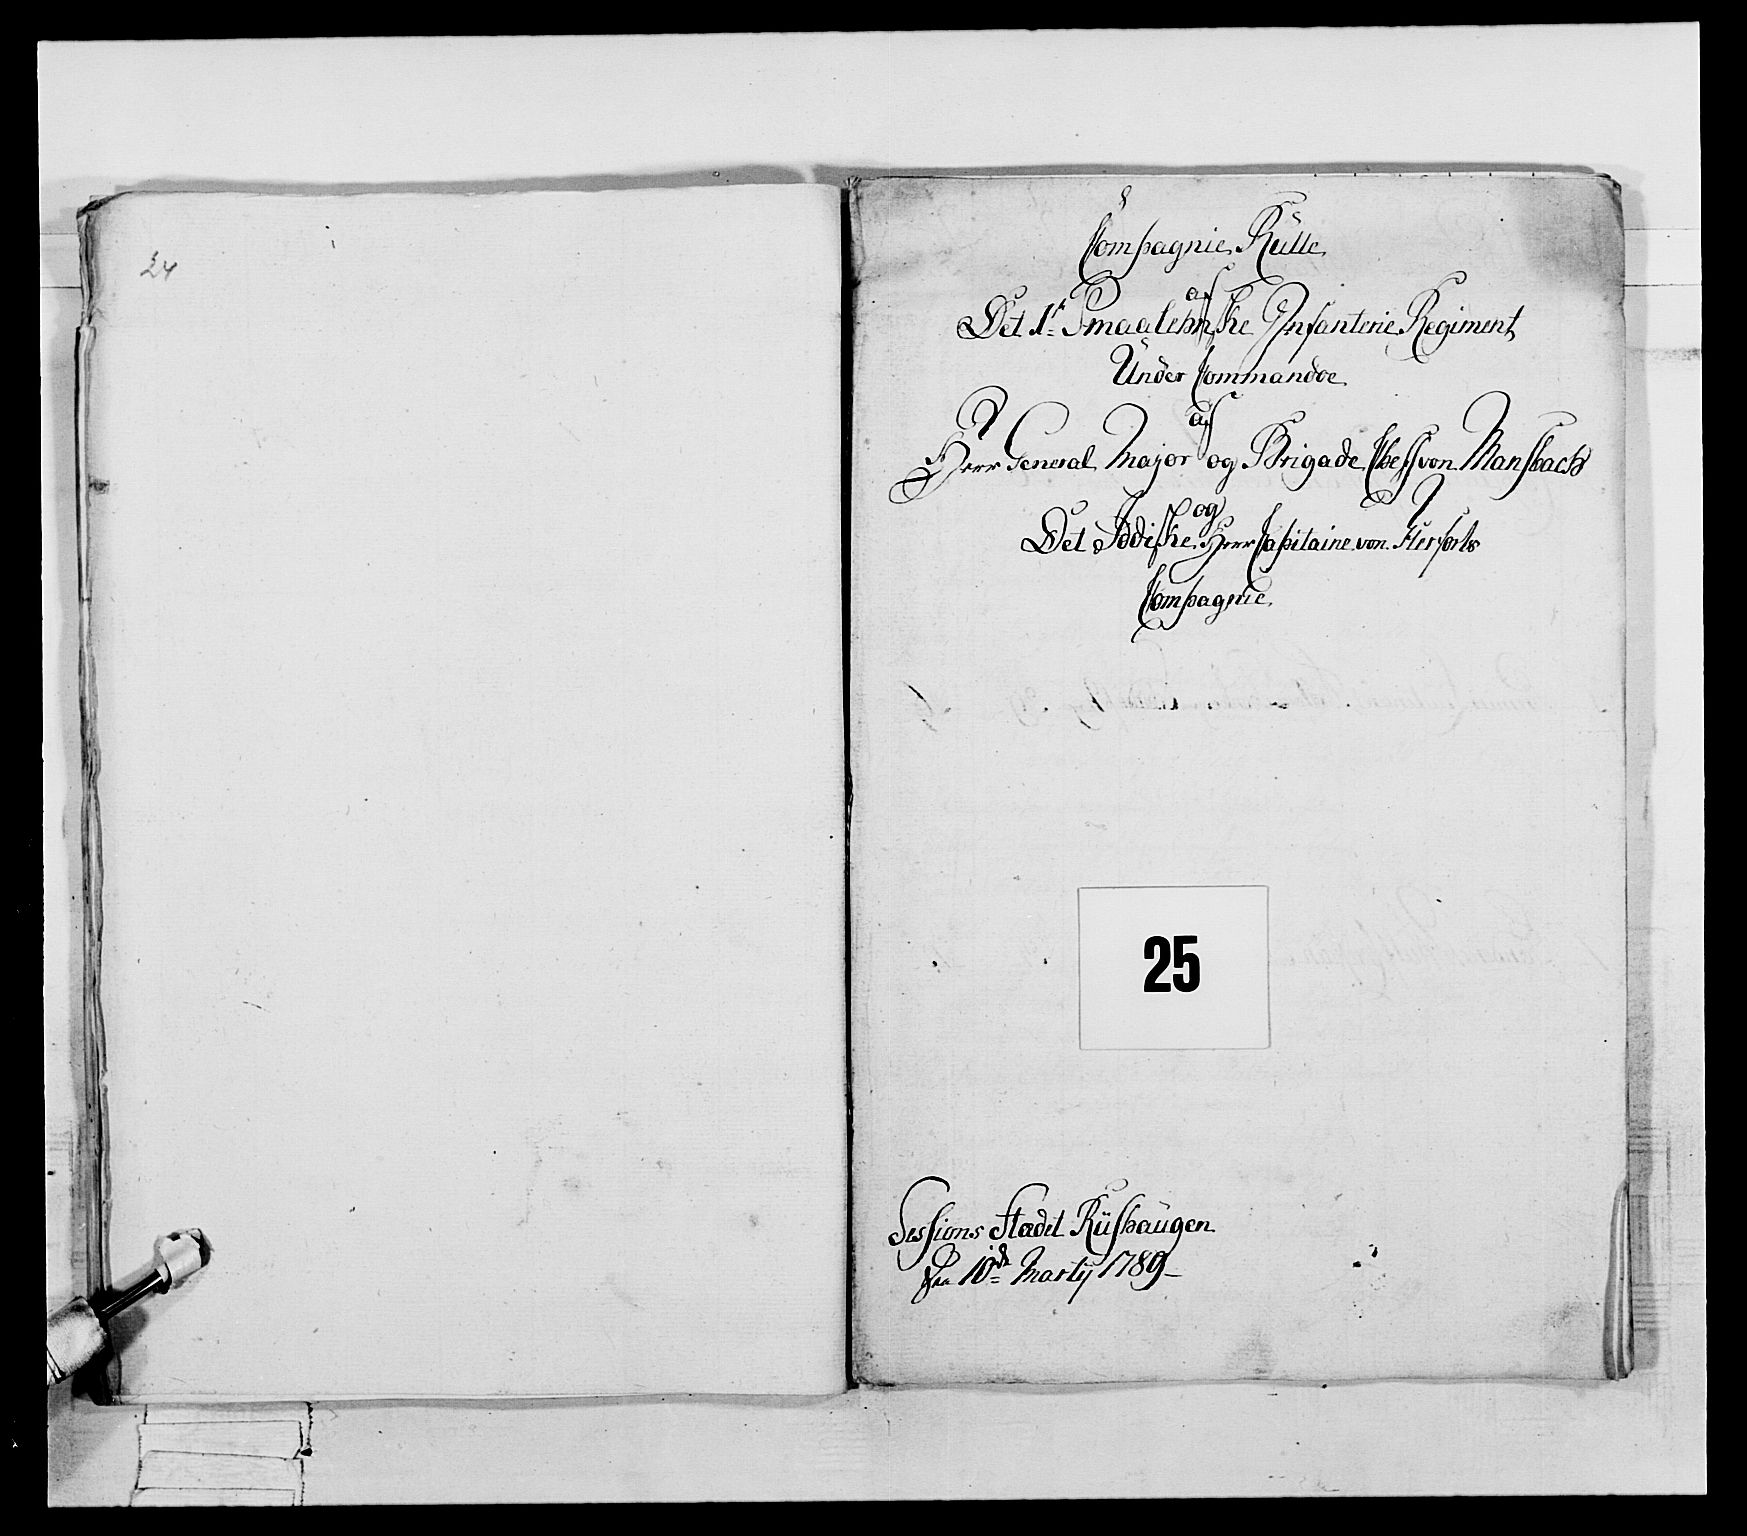 24
Compagnie Rülle
af
Det 1te Smaalehnske Infanterie Regiment
Ünder Commandoe
af
Herr General Major og Brigade Chef von Mansbach
og
Det Iddiske Herr Capitaine von
Compagnie.
25
Sessions Stædet Rüshaügen
den 10de Marty 1789